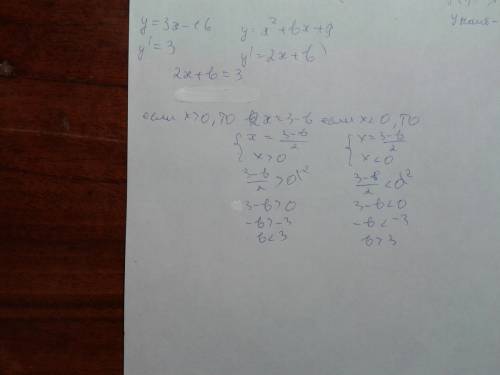 y = 3x - 16 y = x² + bx + 9
y' = 3 y' = 2x + b
2x + b = 3
если x > 0, то 2x = 3 - b если x < 0, то
{ x = (3-b)/2 { x = (3-b)/2
x > 0 x < 0
(3-b)/2 > 0 |·2 (3-b)/2 < 0 |·2
3 - b > 0 3 - b < 0
-b > -3 -b < -3
b < 3 b > 3